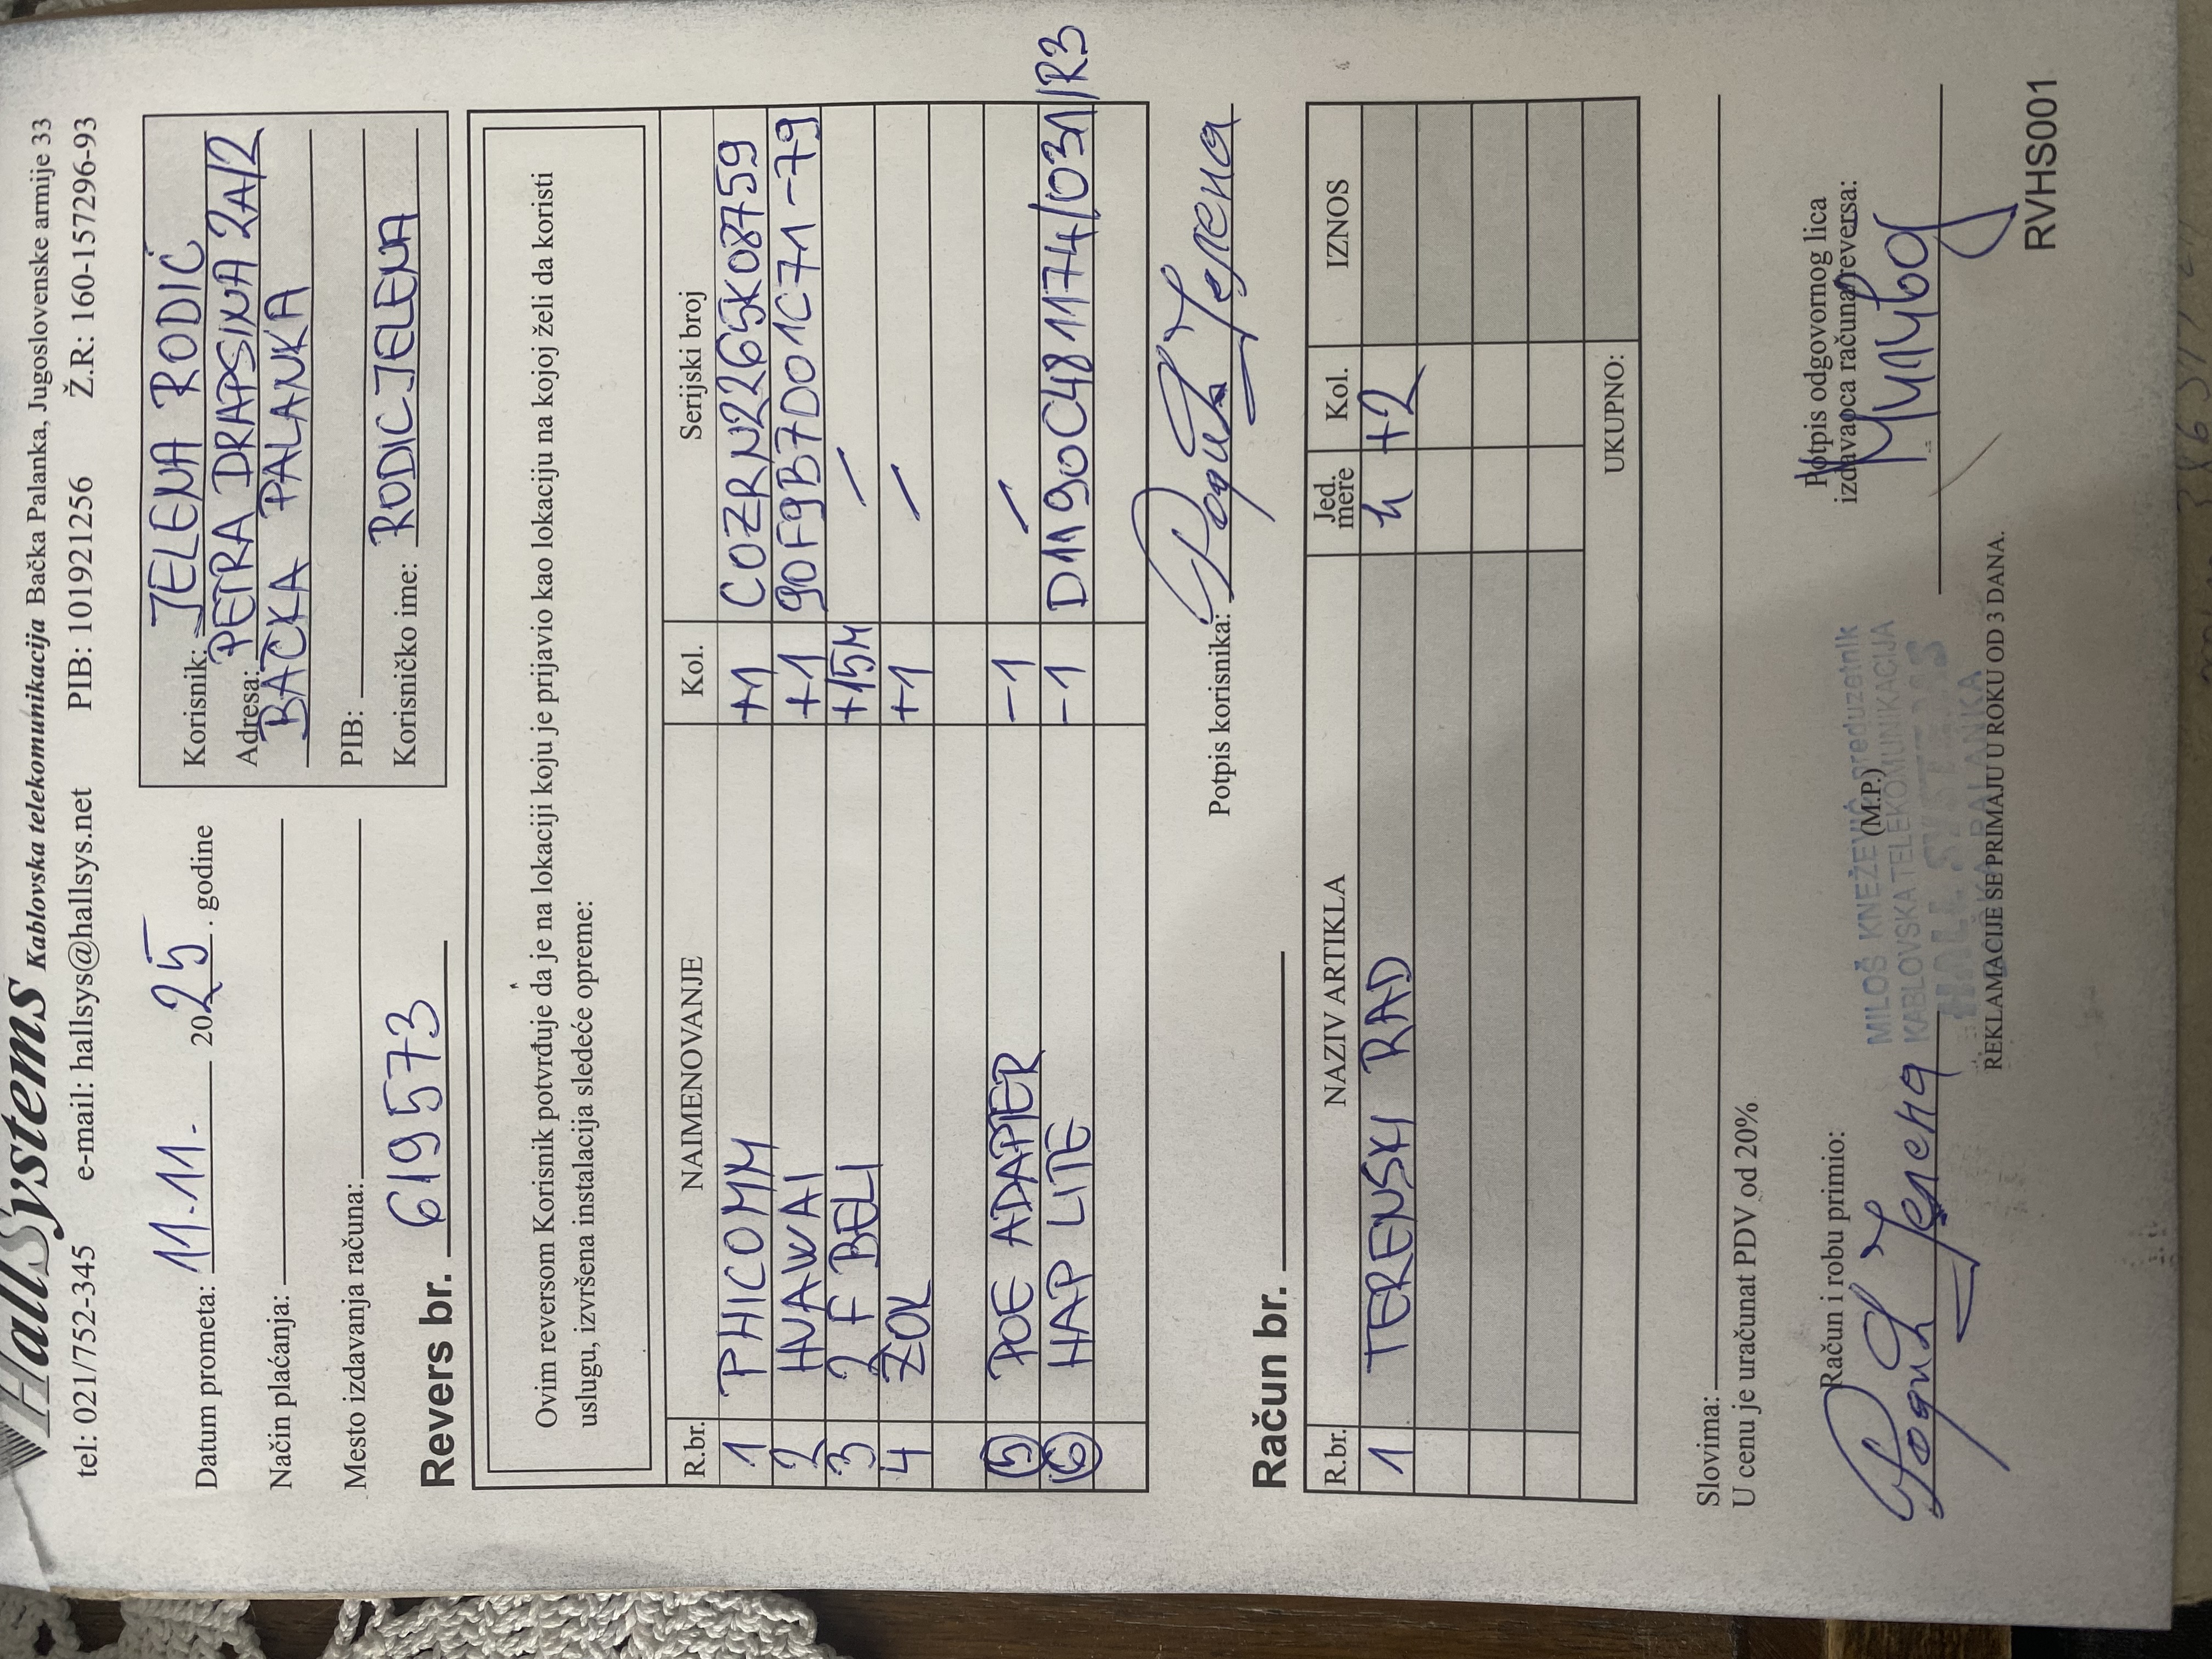 HallSystems Kablovska telekomunikacija Bačka Palanka, Jugoslovenske armije 33
tel: 021/752-345 e-mail: hallsys@hallsys.net PIB: 101921256 Ž.R: 160-157296-93
Datum prometa: 11.11. 2025. godine
Način plaćanja:
Mesto izdavanja računa:
Korisnik: JELENA RODIĆ
Adresa: PETRA DRAPSINA 2A/2
BAČKA PALANKA
PIB:
Korisničko ime: RODICJELENA
Revers br. 619573
Ovim reversom Korisnik potvrđuje da je na lokaciji koju je prijavio kao lokaciju na kojoj želi da koristi
uslugu, izvršena instalacija sledeće opreme:
R.br. NAIMENOVANJE Kol. Serijski broj
1 PHICOMM +1 COZRN2265K08759
2 HUAWAI +1 90F9B7D01C71-79
3 2 F BELI +15M /
4 ŽOK +1 /
5 POE ADAPTER -1 /
6 HAP LITE -1 D1190C481174/031/R3
Potpis korisnika: Родић Јелена
Račun br.
R.br. NAZIV ARTIKLA Jed. mere Kol. IZNOS
1 TERENSKI RAD h +2
UKUPNO:
Slovima:
U cenu je uračunat PDV od 20%
Račun i robu primio:
Родић Јелена
(M.P.)
MILOŠ KNEŽEVIĆ preduzetnik
KABLOVSKA TELEKOMUNIKACIJA
HALL SYSTEMS
BAČKA PALANKA
Potpis odgovornog lica
izdavaoca računa/reversa:
REKLAMACIJE SE PRIMAJU U ROKU OD 3 DANA.
RVHS001